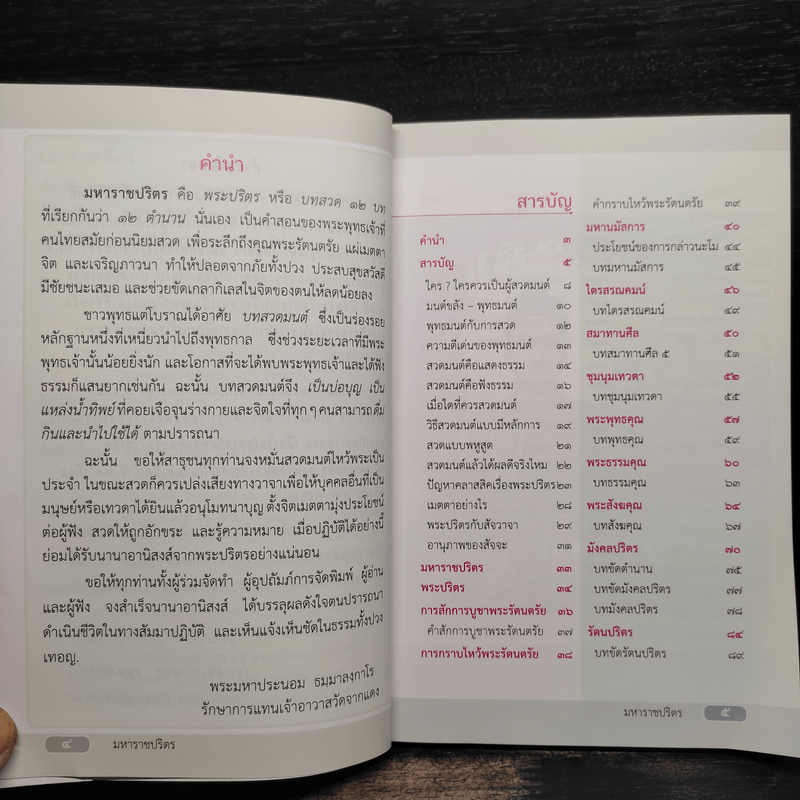 คำนำ
มหาราชปริตร คือ พระปริตร หรือ บทสวด ๑๒ บท
ที่เรียกกันว่า ๑๒ ตำนาน นั่นเอง เป็นคำสอนของพระพุทธเจ้าที่
คนไทยสมัยก่อนนิยมสวด เพื่อระลึกถึงคุณพระรัตนตรัย แผ่เมตตา
จิต และเจริญภาวนา ทำให้ปลอดจากภัยทั้งปวง ประสบสุขสวัสดี
มีชัยชนะเสมอ และช่วยขัดเกลากิเลสในจิตของตนให้ลดน้อยลง
ชาวพุทธแต่โบราณได้อาศัย บทสวดมนต์ ซึ่งเป็นร่องรอย
หลักฐานหนึ่งที่เหนี่ยวนำไปถึงพุทธกาล ซึ่งช่วงระยะเวลาที่มีพระ
พุทธเจ้านั้นน้อยยิ่งนัก และโอกาสที่จะได้พบพระพุทธเจ้าและได้ฟัง
ธรรมก็แสนยากเช่นกัน ฉะนั้น บทสวดมนต์จึง เป็นบ่อบุญ เป็น
แหล่งน้ำทิพย์ ที่คอยเจือจุนร่างกายและจิตใจที่ทุก ๆ คนสามารถดื่ม
กินและนำไปใช้ได้ ตามปรารถนา
ฉะนั้น ขอให้สาธุชนทุกท่านจงหมั่นสวดมนต์ไหว้พระเป็น
ประจำ ในขณะสวดก็ควรเปล่งเสียงทางวาจาเพื่อให้บุคคลอื่นที่เป็น
มนุษย์หรือเทวดาได้ยินแล้วอนุโมทนาบุญ ตั้งจิตเมตตามุ่งประโยชน์
ต่อผู้ฟัง สวดให้ถูกอักขระ และรู้ความหมาย เมื่อปฏิบัติได้อย่างนี้
ย่อมได้รับนานาอานิสงส์จากพระปริตรอย่างแน่นอน
ขอให้ทุกท่านทั้งผู้ร่วมจัดทำ ผู้อุปถัมภ์การจัดพิมพ์ ผู้อ่าน
และผู้ฟัง จงสำเร็จนานาอานิสงส์ ได้บรรลุผลดังใจตนปรารถนา
ดำเนินชีวิตในทางสัมมาปฏิบัติ และเห็นแจ้งเห็นชัดในธรรมทั้งปวง
เทอญ.
พระมหาประนอม ธมฺมาลงฺกาโร
รักษาการแทนเจ้าอาวาสวัดจากแดง
๔ มหาราชปริตร
สารบัญ
คำนำ ๓
สารบัญ ๕
ใคร ? ใครควรเป็นผู้สวดมนต์ ๘
มนต์ขลัง – พุทธมนต์ ๑๐
พุทธมนต์กับการสวด ๑๒
ความดีเด่นของพุทธมนต์ ๑๓
สวดมนต์คือแสดงธรรม ๑๔
สวดมนต์คือฟังธรรม ๑๖
เมื่อใดที่ควรสวดมนต์ ๑๗
วิธีสวดมนต์แบบมีหลักการ ๑๙
สวดแบบพหูสูต ๒๑
สวดมนต์แล้วได้ผลดีจริงไหม ๒๒
ปัญหาคลาสสิคเรื่องพระปริตร ๒๓
เมตตาอย่างไร ๒๘
พระปริตรกับสัจวาจา ๒๙
อานุภาพของสัจจะ ๓๑
มหาราชปริตร ๓๓
พระปริตร ๓๔
การสักการบูชาพระรัตนตรัย ๓๖
คำสักการบูชาพระรัตนตรัย ๓๗
การกราบไหว้พระรัตนตรัย ๓๘
คำกราบไหว้พระรัตนตรัย ๓๙
มหานมัสการ ๔๐
ประโยชน์ของการกล่าวนะโม ๔๔
บทมหานมัสการ ๔๕
ไตรสรณคมน์ ๔๖
บทไตรสรณคมน์ ๔๙
สมาทานศีล ๕๐
บทสมาทานศีล ๕ ๕๑
ชุมนุมเทวดา ๕๒
บทชุมนุมเทวดา ๕๕
พระพุทธคุณ ๕๗
บทพุทธคุณ ๕๙
พระธรรมคุณ ๖๐
บทธรรมคุณ ๖๓
พระสังฆคุณ ๖๔
บทสังฆคุณ ๖๗
มังคลปริตร ๗๐
บทขัดตำนาน ๗๕
บทขัดมังคลปริตร ๗๗
บทมังคลปริตร ๗๘
รัตนปริตร ๘๔
บทขัดรัตนปริตร ๘๙
มหาราชปริตร ๕